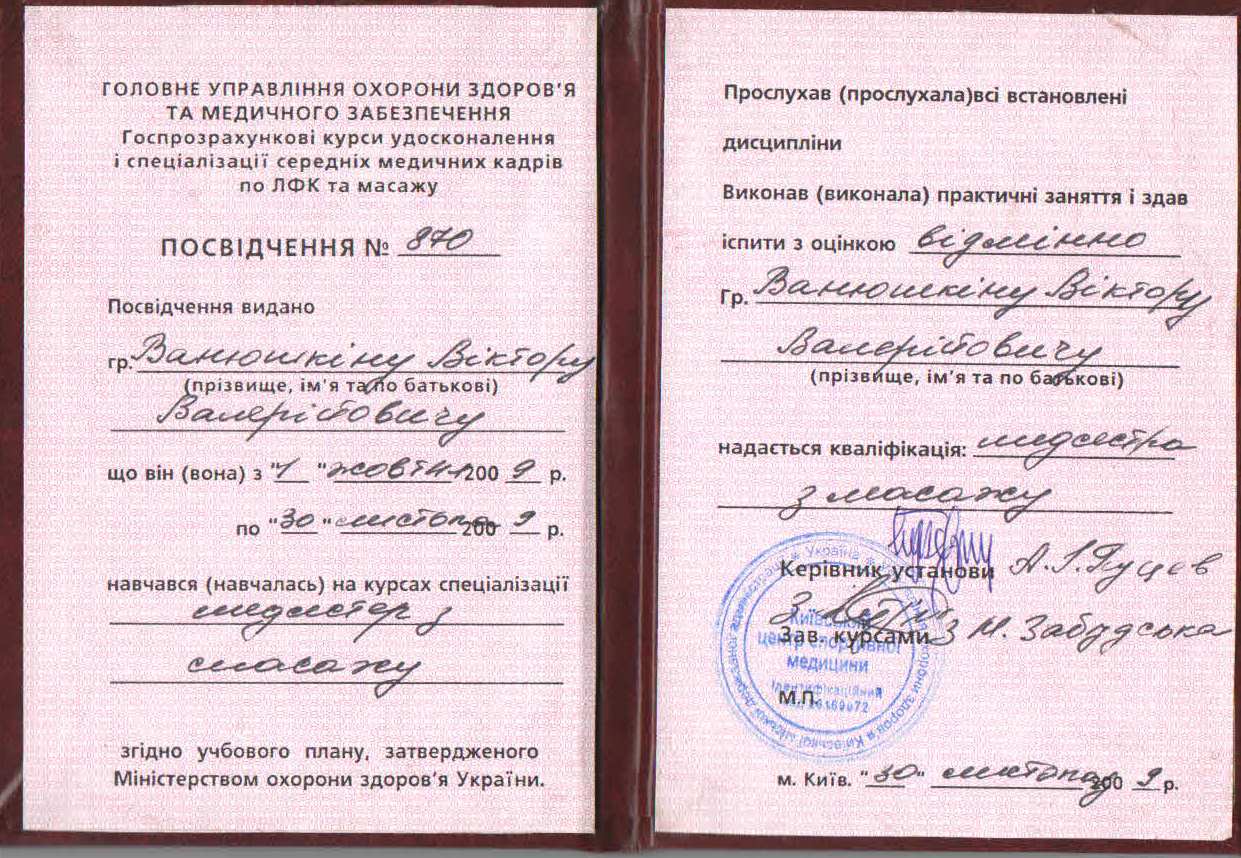 ГОЛОВНЕ УПРАВЛІННЯ ОХОРОНИ ЗДОРОВ'Я
ТА МЕДИЧНОГО ЗАБЕЗПЕЧЕННЯ
Госпрозрахункові курси удосконалення
і спеціалізації середніх медичних кадрів
по ЛФК та масажу
ПОСВІДЧЕННЯ № 870
Посвідчення видано
гр. Ванюшкіну Віктору
(прізвище, ім'я та по батькові)
Валерійовичу
що він (вона) з "1" жовтня 2009 р.
по "30" листопа 2009 р.
навчався (навчалась) на курсах спеціалізації
медсестер з
масажу
згідно учбового плану, затвердженого
Міністерством охорони здоров'я України.
Прослухав (прослухала)всі встановлені
дисципліни
Виконав (виконала) практичні заняття і здав
іспити з оцінкою відмінно
Гр. Ванюшкіну Віктору
Валерійовичу
(прізвище, ім'я та по батькові)
надається кваліфікація: медсестра
з масажу
Керівник установи А.І.
Зав. курсами З М. Забудська
Україна
Київський
центр спортивної
медицини
Ідентифікаційний
М.П.
м. Київ. "30" листопад 2009 р.